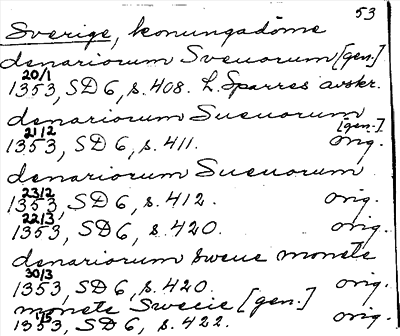 53
Sverige, konungadöme
denariorum Sveuorum [gen.]
20/1
1353, SD 6, s. 408. L. Sparres avskr.
denariorum Sueuorum
[gen.]
21/2
1353, SD 6, s. 411. orig.
denariorum Sueuorum
23/2
1353, SD 6, s. 412. orig.
22/3
1353, SD 6, s. 420. orig.
denariorum swene monete
30/3
1353, SD 6, s. 420. orig.
monete Swecie [gen.]
1353, SD 6, s. 422. orig.